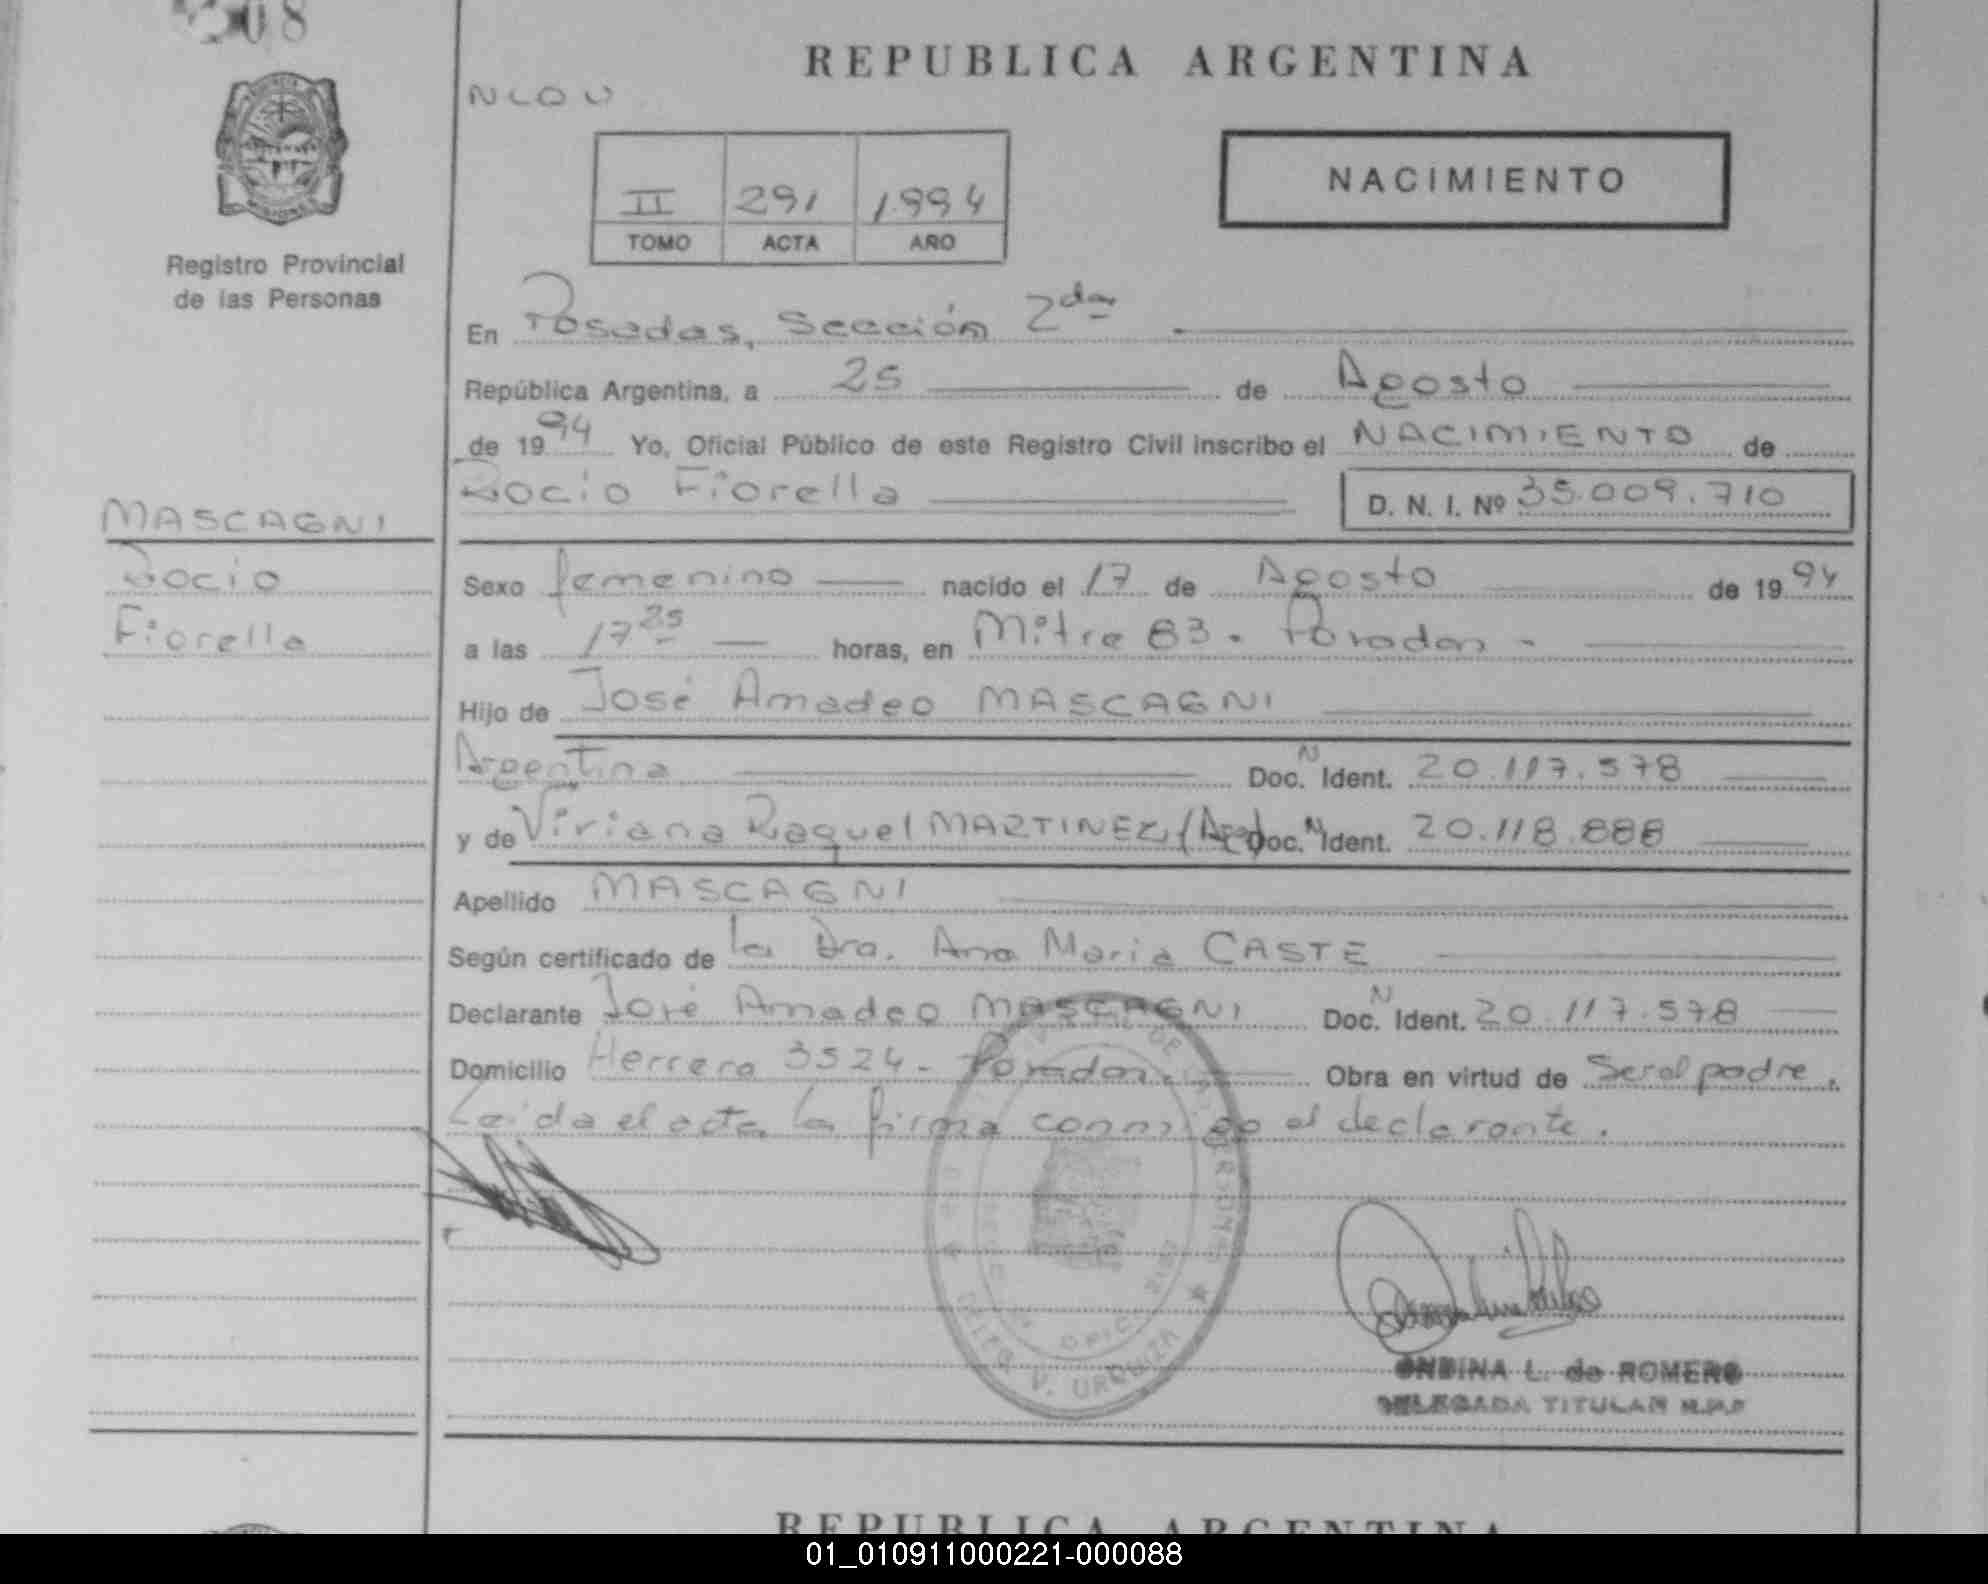 08
REPUBLICA ARGENTINA
NLOU
II 291 1.994
TOMO ACTA AÑO
NACIMIENTO
Registro Provincial
de las Personas
En Posadas, Sección 2da
República Argentina, a 25 de Agosto
de 1994 Yo, Oficial Público de este Registro Civil inscribo el NACIMIENTO de
Rocio Fiorella D. N. I. Nº 35.009.710
MASCAGNI
Rocio
Fiorella
Sexo femenino nacido el 17 de Agosto de 1994
a las 17 25 horas, en Mitre 83. Posadas -
Hijo de José Amadeo MASCAGNI
Argentina Doc. N Ident. 20.117.578
y de Viviana Raquel MARTINEZ (Arg) Doc. N Ident. 20.118.888
Apellido MASCAGNI
Según certificado de la Dra. Ana Maria CASTE
Declarante José Amadeo MASCAGNI Doc. N Ident. 20.117.578
Domicilio Herrera 3524 - Posadas. Obra en virtud de Ser el padre.
Leida el acta la firma conmigo el declarante.
V. URQUIZA
ONDINA L. de ROMERO
DELEGADA TITULAR R.P.P
REPUBLICA ARGENTINA
01_010911000221-000088